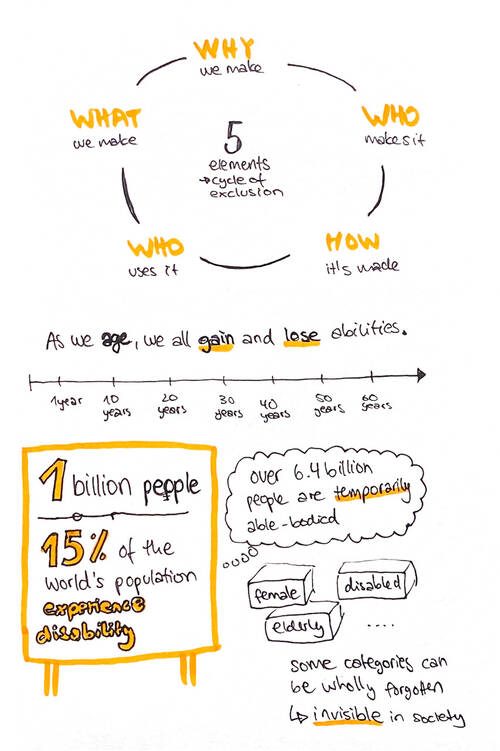 WHY
we make
WHO
makes it
HOW
it's made
WHO
uses it
WHAT
we make
5
elements
→ cycle of
exclusion
As we age, we all gain and lose abilities.
1 year
10
years
20
years
30
years
40
years
50
years
60
years
1 billion people
15% of the
world's population
experience
disability
over 6.4 billion
people are temporarily
able-bodied
female
disabled
elderly
....
some categories can
be wholly forgotten
↳ invisible in society